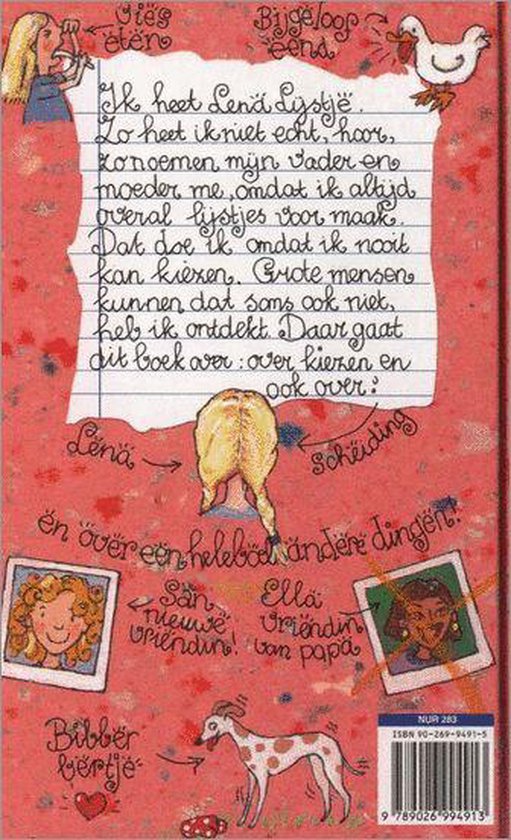 Vies
eten
Bijgeloof
eend
Ik heet Lena Lijstje.
Zo heet ik niet echt, hoor,
zo noemen mijn vader en
moeder me, omdat ik altijd
overal lijstjes voor maak.
Dat doe ik omdat ik nooit
kan kiezen. Grote mensen
kunnen dat soms ook niet,
heb ik ontdekt. Daar gaat
dit boek over: over kiezen en
ook over:
Lena
scheiding
en over een heleboel andere dingen!
San
nieuwe
vriendin!
Ella
vriendin
van papa
Bibber
bertje
NUR 283
ISBN 90-269-9491-5
9 789026 994913